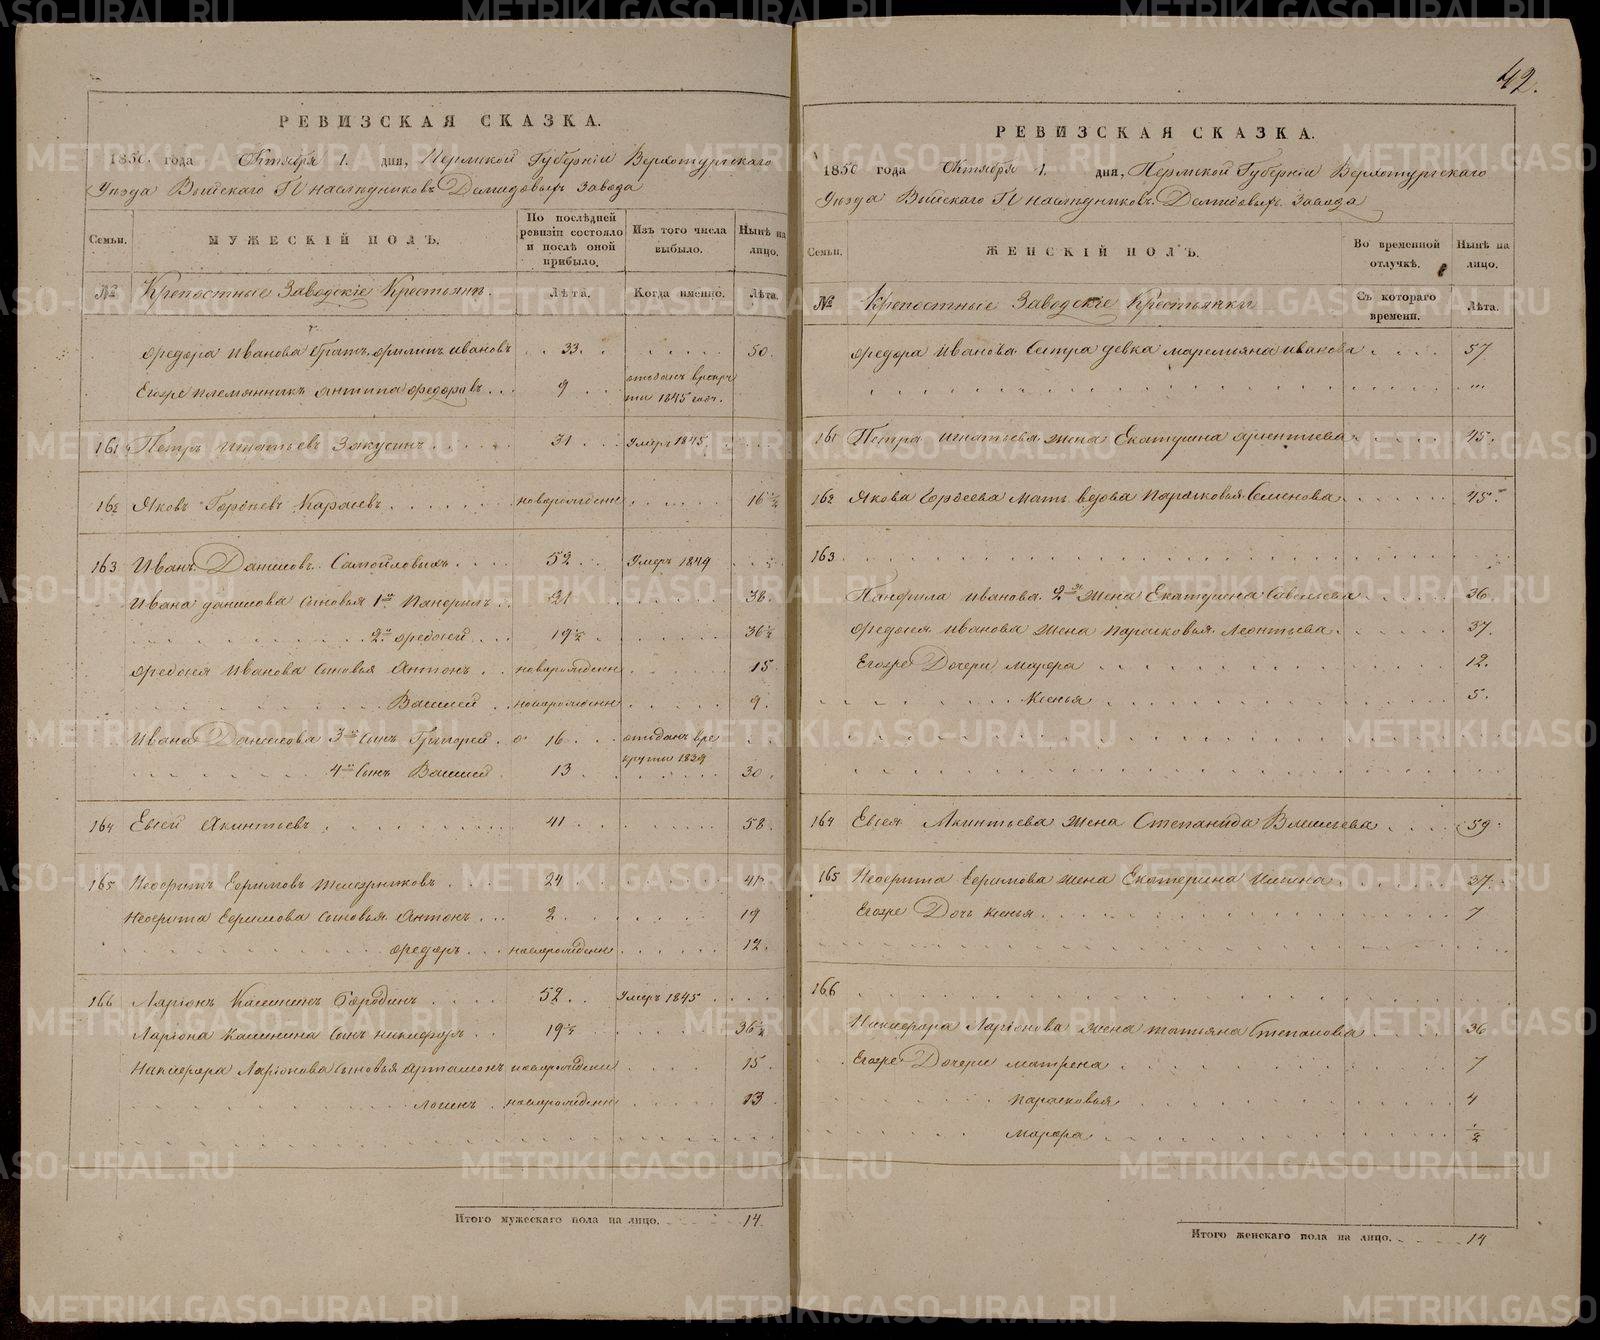 42.
РЕВИЗСКАЯ СКАЗКА.
1850 года Октября 1. дня, Пермской Губерніи Верхотурскаго
Уезда Выйскаго Гг наследниковъ Демидовыхъ Завода
Семьи.
МУЖЕСКІЙ ПОЛЪ.
По послѣдней ревизіи состояло и послѣ оной прибыло.
Изъ того числа выбыло.
Нынѣ на лицо.
№ Крепостные Заводскіе Крестьяне.
Лѣта.
Когда именно.
Лѣта.
Федора Иванова Братъ Филипъ Ивановъ 33. 50.
Егоже племянникъ Антипа Федоровъ 9 отданъ врекру
ты 1845 года.
161 Петръ Игнатьевъ Закусинъ 31 Умеръ 1845
162 Яковъ Гордеевъ Карасевъ новорожденн 16 1/2
163 Иванъ Даниловъ Самойловыхъ 52 Умеръ 1849
Ивана Данилова Сыновья 1й Панфилъ 21 38.
2й Федосей 19 1/2 36 1/2
Федосея Иванова Сыновья Антонъ новорожденн 15
Василей новорожденн 9.
Ивана Данилова 3й Сынъ Григорей 16 отданъ вре
круты 1839
4й Сынъ Василей 13 30.
164 Евсей Акинтьевъ 41 58.
165 Неферитъ Ефимовъ Железниковъ 24 41
Неферита Ефимова Сыновья Антонъ 2 19
Федоръ новорожденн 12.
166 Ларіонъ Калининъ Бородинъ 52 Умеръ 1845
Ларіона Калинина Сынъ Никифоръ 19 1/2 36 1/2
Никифора Ларіонова Сыновья Артамонъ новорожденн 15.
Логинъ новорожденн 13
Итого мужескаго пола на лицо. 14
РЕВИЗСКАЯ СКАЗКА.
1850 года Октября 1. дня, Пермской Губерніи Верхотурскаго
Уезда Выйскаго Гг наследниковъ Демидовыхъ Завода
Семьи.
ЖЕНСКІЙ ПОЛЪ.
Во временной отлучкѣ.
Нынѣ на лицо.
№ Крепостные Заводскіе Крестьянки
Съ котораго времени.
Лѣта.
Федора Иванова Сестра девка Маремьяна Иванова 57
161 Петра Игнатьева жена Екатерина 45.
162 Якова Гордеева Мать вдова Парасковья Семенова 45
163
Панфила Иванова 2я жена Екатерина Савельева 36
Федосея Иванова жена Парасковья Леонтьева 37.
Егоже Дочери Марфа 12.
Ксенья 5.
164 Евсея Акинтьева жена Степанида Васильева 59
165 Неферита Ефимова жена Екатерина Ильина 37.
Егоже Дочь Ксенья 7
166
Никифора Ларіонова жена Татьяна Степанова 36
Егоже Дочери Матрена 7
Парасковья 4
Марфа 1/2
Итого женскаго пола на лицо. 14
METRIKI.GASO-URAL.RU